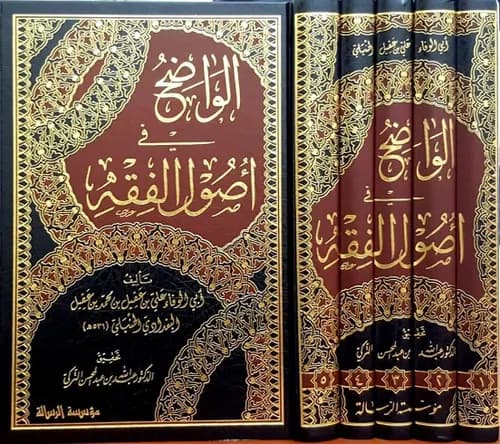 الواضح
في
أصول الفقه
تأليف
أبي الوفاء علي بن عقيل بن محمد بن عقيل
البغدادي الحنبلي (٥١٣هـ)
تحقيق
الدكتور عبد الله بن عبد المحسن التركي
مؤسسة الرسالة
أبي الوفاء علي بن عقيل الحنبلي
الواضح
في
أصول الفقه
تحقيق
الدكتور عبد الله بن عبد المحسن التركي
٥ ٤ ٣ ٢ ١
مؤسسة الرسالة